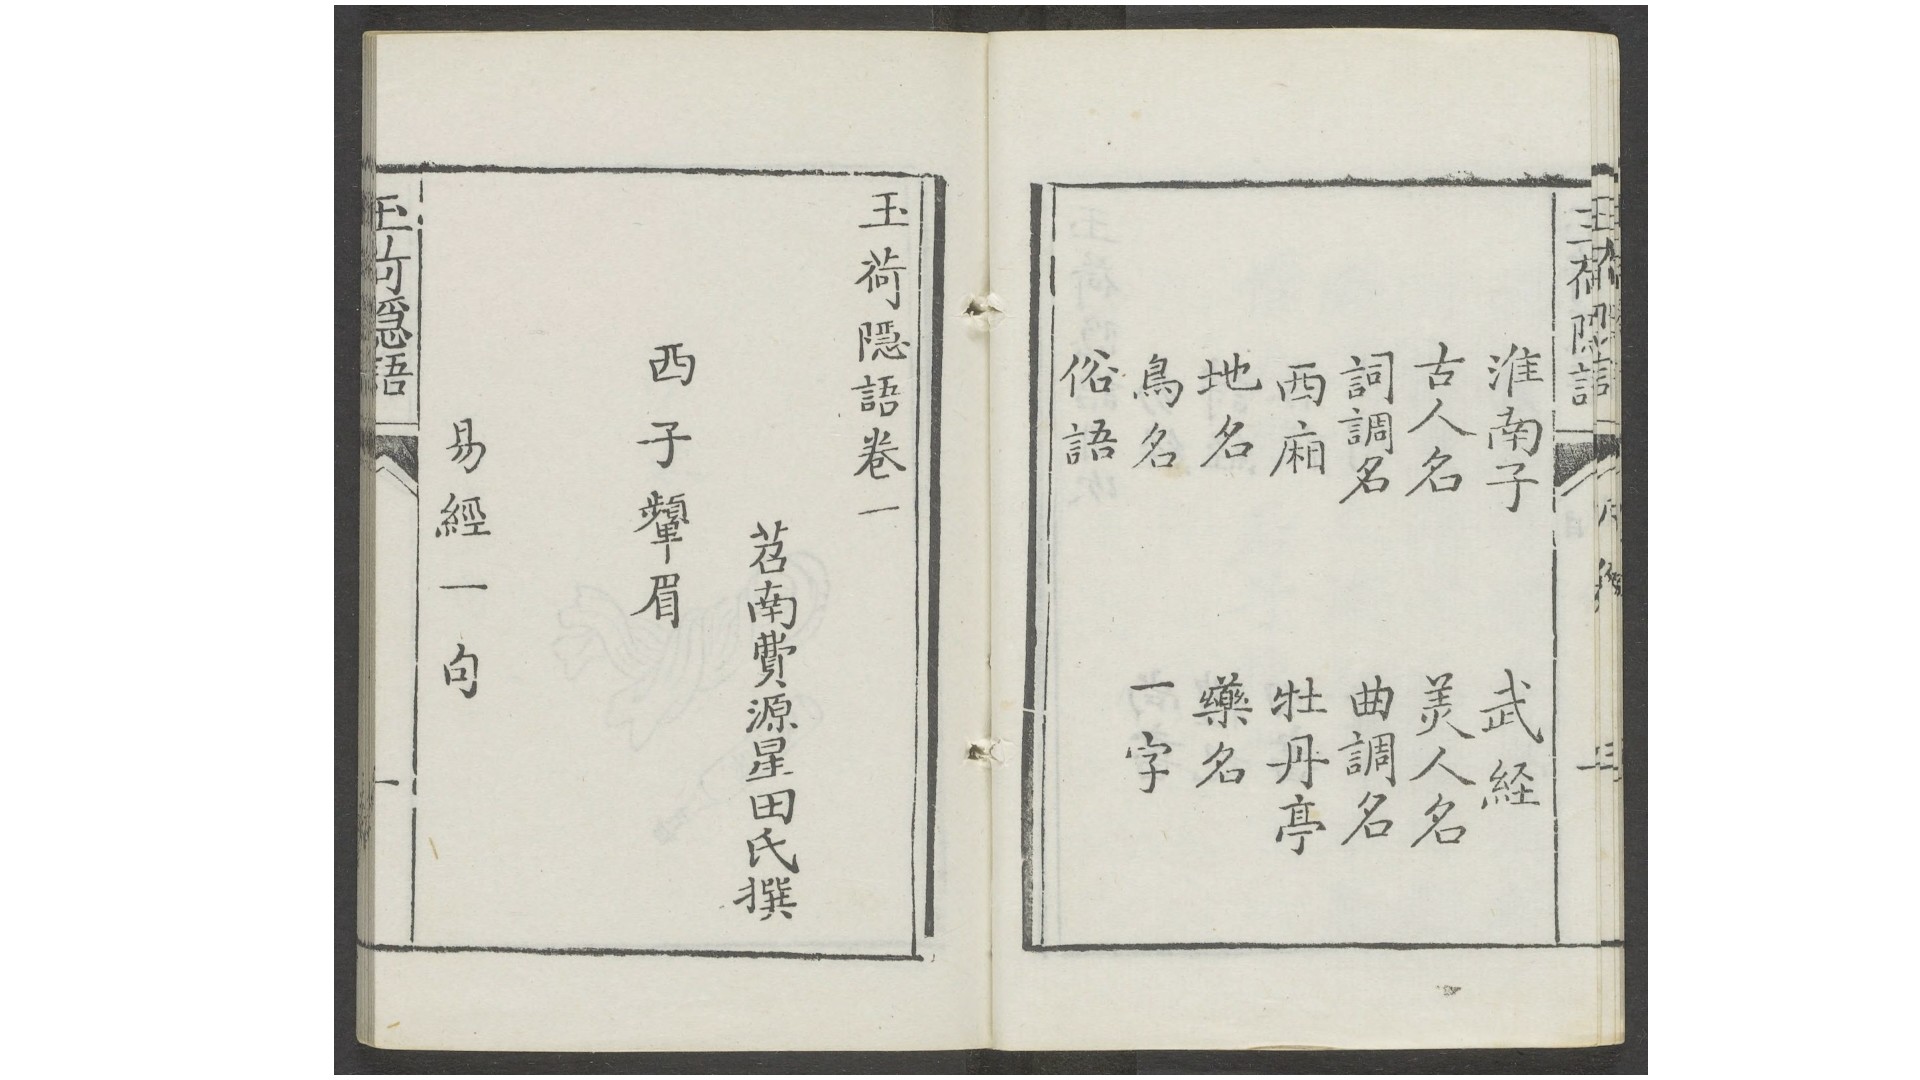 淮南子 武経
古人名 美人名
詞調名 曲調名
西廂 牡丹亭
地名 藥名
鳥名 一字
俗語
玉荷隱語卷一
苕南費源星田氏撰
西子顰眉
易經一句
玉荷隱語
一